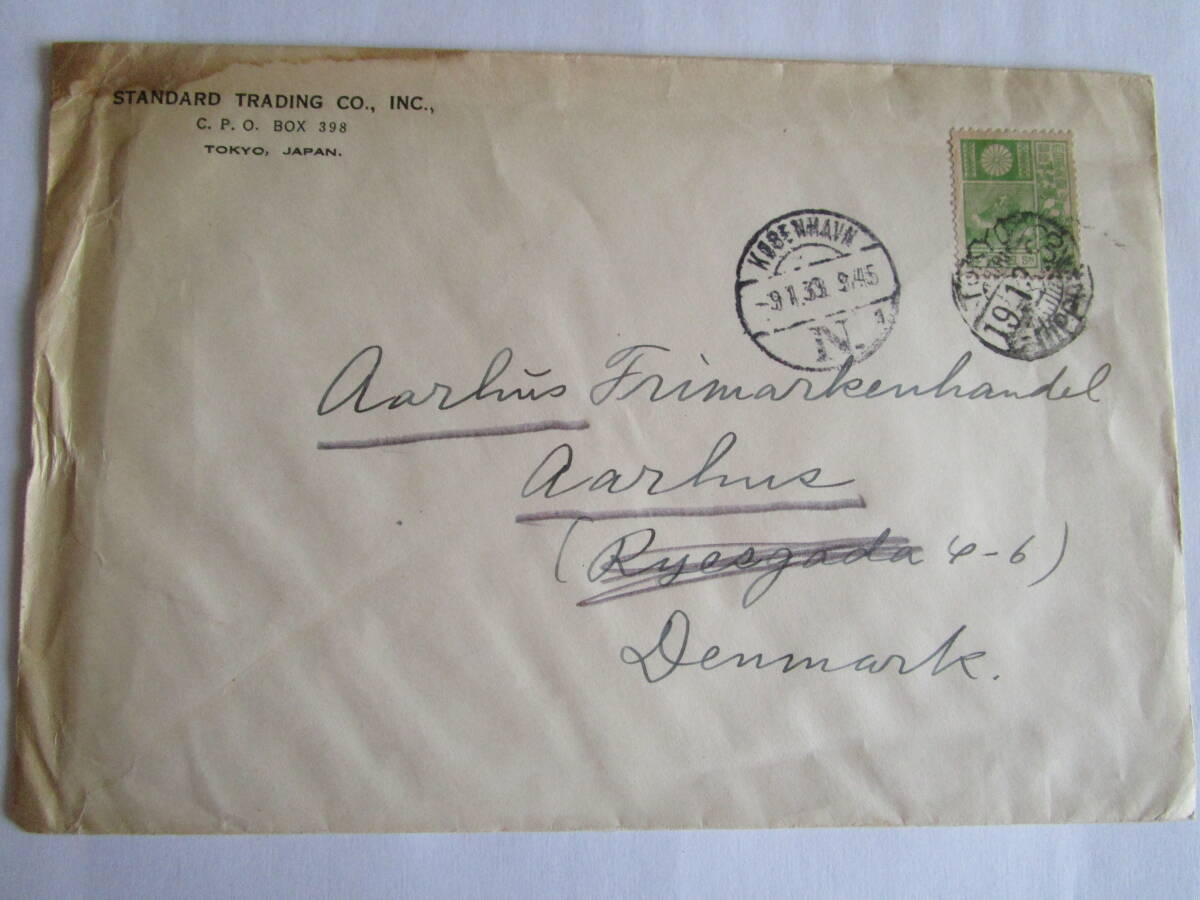 STANDARD TRADING CO., INC.,
C. P. O. BOX 398
TOKYO, JAPAN.
KØBENHAVN
9.1.39. 9/45
N. 1
TOKYO
19.1
NIPPON
Aarhus Frimarkenhandel
Aarhus
(Ryesgada 4-6)
Denmark.